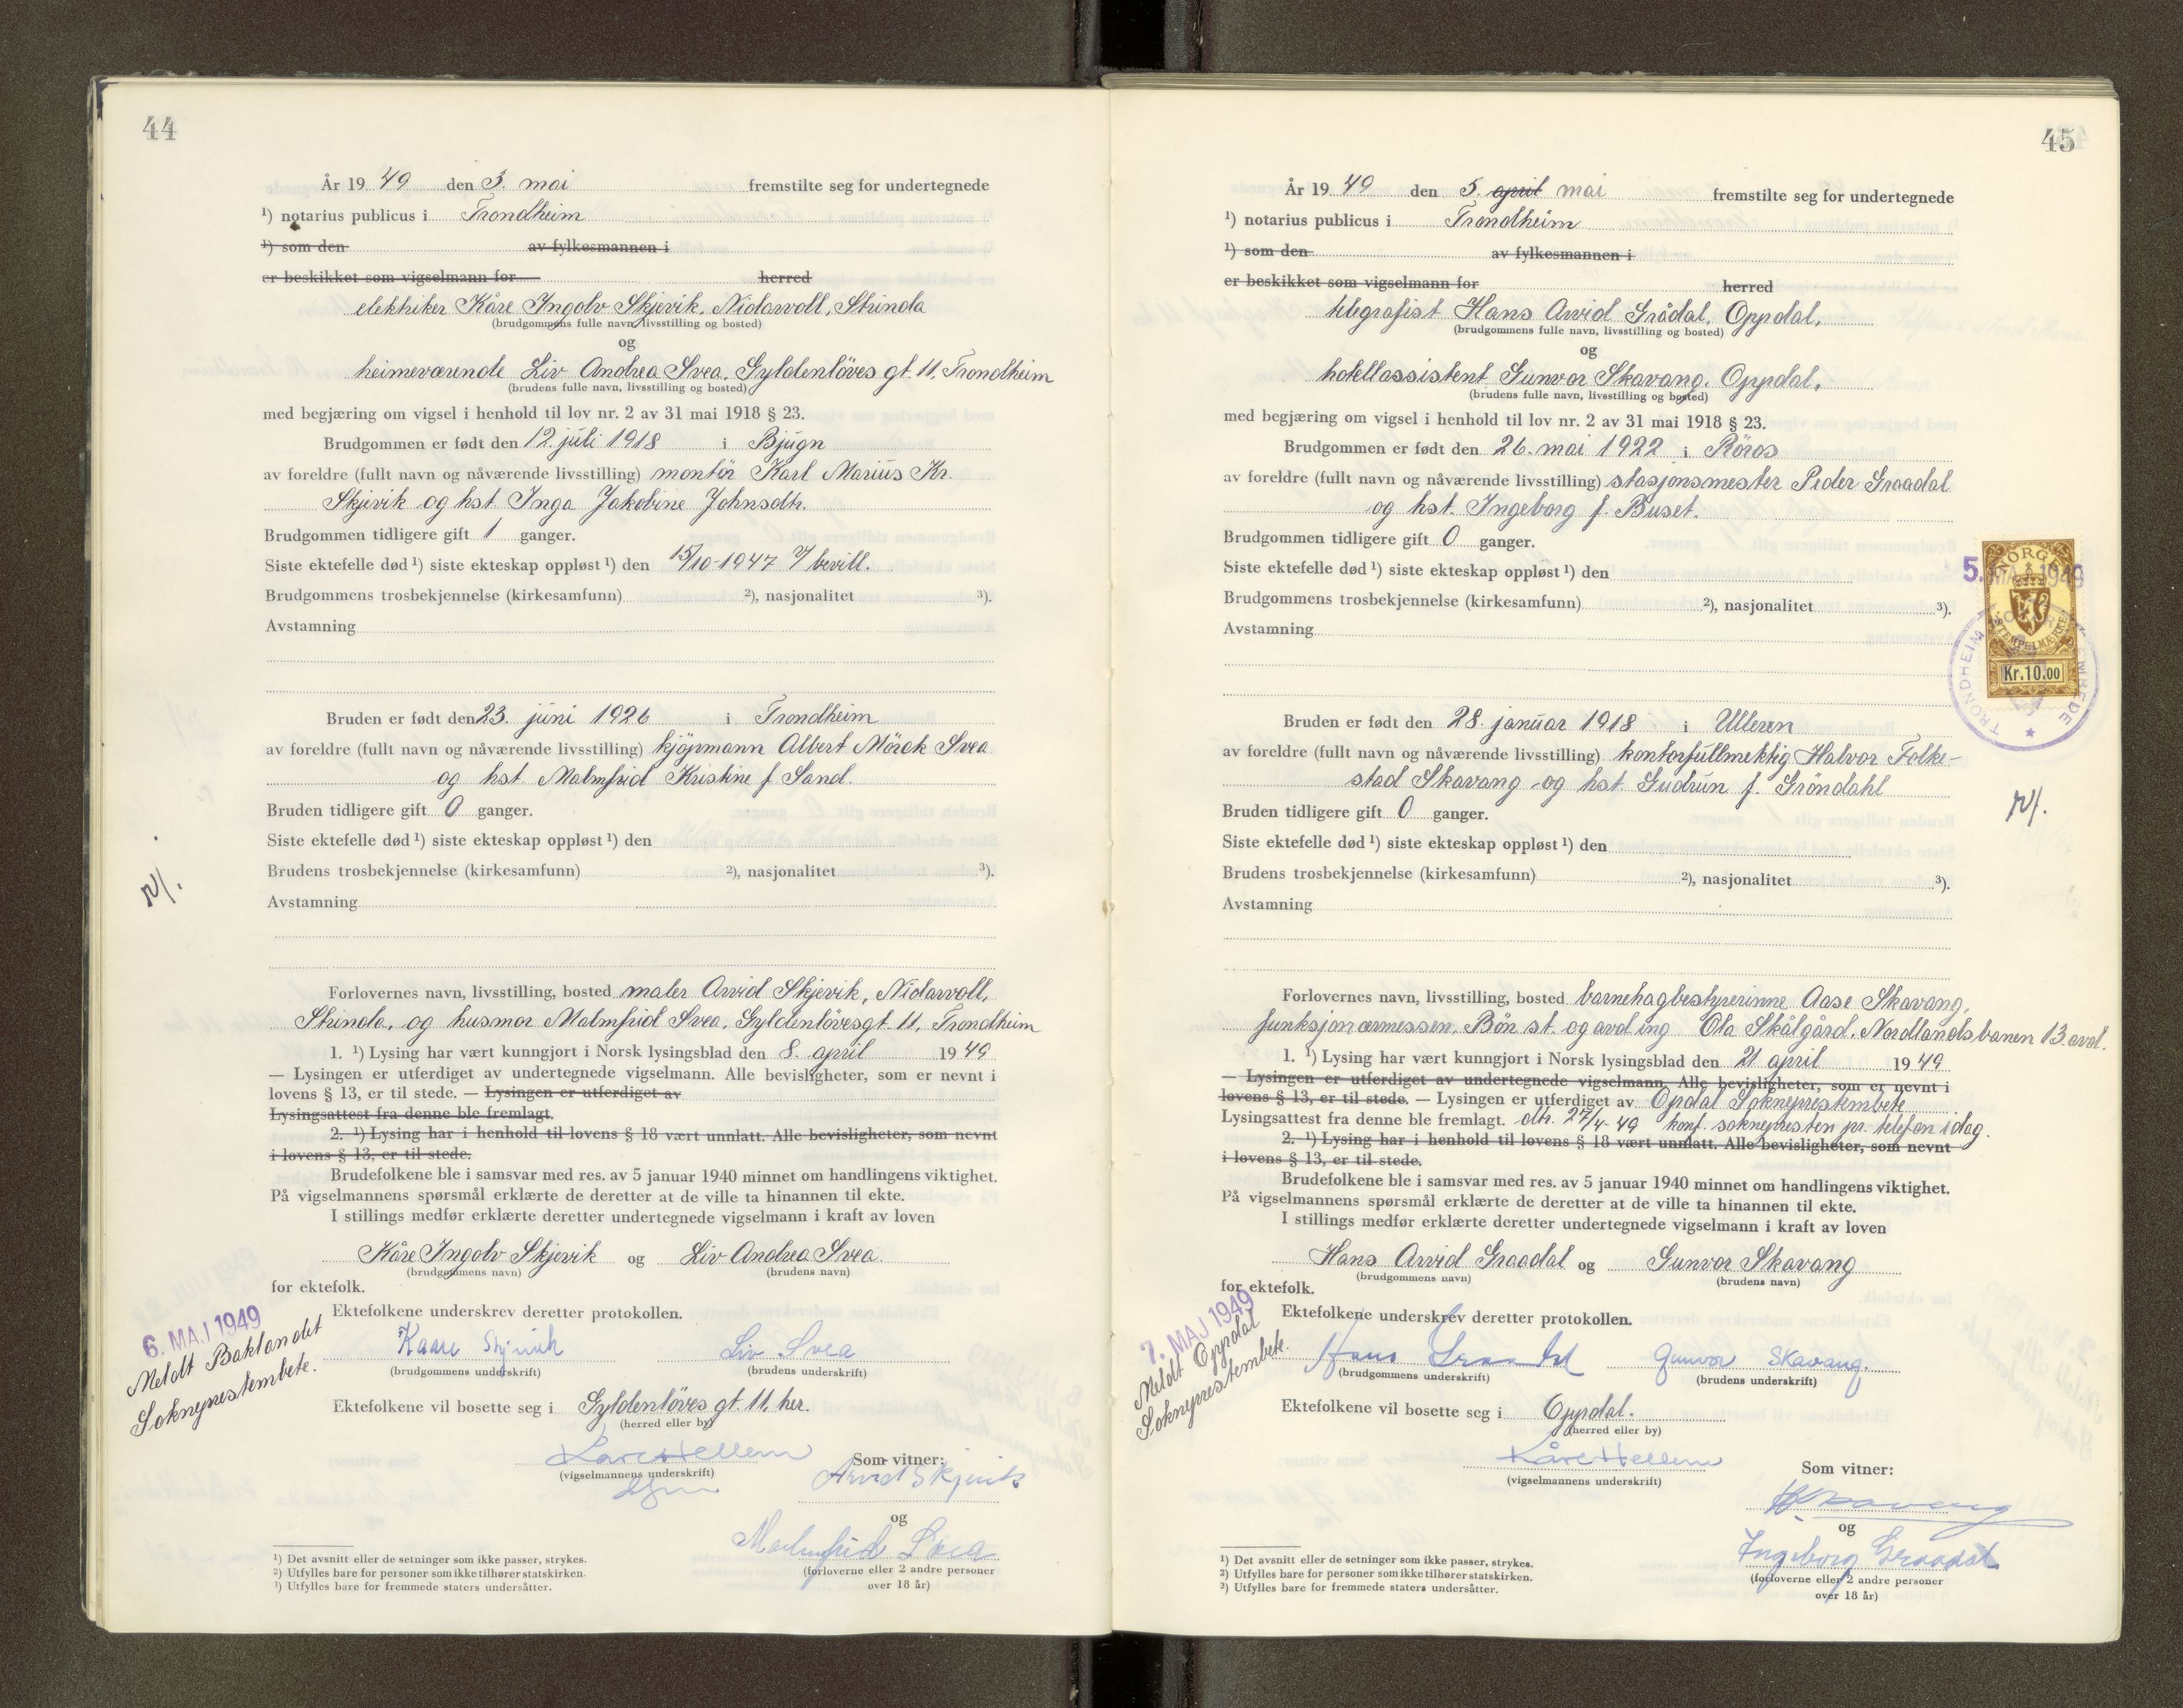 44
År 19 49 den 3. mai fremstilte seg for undertegnede
¹) notarius publicus i Trondheim
¹) som den av fylkesmannen i
er beskikket som vigselmann for herred
elektriker Kåre Ingolv Skjevik, Nidarvoll, Strinda
(brudgommens fulle navn, livsstilling og bosted)
og
heimeværende Liv Andrea Svea, Gyldenlöves gt. 11, Trondheim
(brudens fulle navn, livsstilling og bosted)
med begjæring om vigsel i henhold til lov nr. 2 av 31 mai 1918 § 23.
Brudgommen er født den 12. juli 1918 i Bjugn
av foreldre (fullt navn og nåværende livsstilling) montör Karl Marius Kr.
Skjevik og hst. Inga Jakobine Johnsdtr.
Brudgommen tidligere gift 1 ganger.
Siste ektefelle død ¹) siste ekteskap oppløst ¹) den 15/10-1947 v/ bevill.
Brudgommens trosbekjennelse (kirkesamfunn) ²), nasjonalitet ³).
Avstamning
Bruden er født den 23. juni 1926 i Trondheim
av foreldre (fullt navn og nåværende livsstilling) kjöpmann Albert Mörck Svea
og hst. Malmfrid Kristine f. Sand.
Bruden tidligere gift 0 ganger.
Siste ektefelle død ¹) siste ekteskap oppløst ¹) den
Brudens trosbekjennelse (kirkesamfunn) ²), nasjonalitet ³).
Avstamning
Forlovernes navn, livsstilling, bosted maler Arvid Skjevik, Nidarvoll,
Strinda, og husmor Malmfrid Svea, Gyldenlövesgt. 11, Trondheim
1. ¹) Lysing har vært kunngjort i Norsk lysingsblad den 8. april 19 49
— Lysingen er utferdiget av undertegnede vigselmann. Alle bevisligheter, som er nevnt i
lovens § 13, er til stede. — Lysingen er utferdiget av
Lysingsattest fra denne ble fremlagt.
2. ¹) Lysing har i henhold til lovens § 18 vært unnlatt. Alle bevisligheter, som nevnt
i lovens § 13, er til stede.
Brudefolkene ble i samsvar med res. av 5 januar 1940 minnet om handlingens viktighet.
På vigselmannens spørsmål erklærte de deretter at de ville ta hinannen til ekte.
I stillings medfør erklærte deretter undertegnede vigselmann i kraft av loven
Kåre Ingolv Skjevik og Liv Andrea Svea.
(brudgommens navn) (brudens navn)
for ektefolk.
Ektefolkene underskrev deretter protokollen.
6. MAJ 1949
Meldt Baklandet
Sokneprestembete.
Kaare Skjevik Liv Svea
(brudgommens underskrift) (brudens underskrift)
Ektefolkene vil bosette seg i Gyldenlöves gt. 11, her.
(herred eller by)
Kåre Hellem
(vigselmannens underskrift)
Som vitner:
Arvid Skjevik
og
Malmfrid Svea
(forloverne eller 2 andre personer
over 18 år)
¹) Det avsnitt eller de setninger som ikke passer, strykes.
²) Utfylles bare for personer som ikke tilhører statskirken.
³) Utfylles bare for fremmede staters undersåtter.
45
År 19 49 den 5. april mai fremstilte seg for undertegnede
¹) notarius publicus i Trondheim
¹) som den av fylkesmannen i
er beskikket som vigselmann for herred
telegrafist Hans Arvid Grådal, Oppdal,
(brudgommens fulle navn, livsstilling og bosted)
og
hotellassistent Gunvor Skavang, Oppdal,
(brudens fulle navn, livsstilling og bosted)
med begjæring om vigsel i henhold til lov nr. 2 av 31 mai 1918 § 23.
Brudgommen er født den 26. mai 1922 i Röros
av foreldre (fullt navn og nåværende livsstilling) stasjonsmester Peder Graadal
og hst. Ingeborg f. Buset.
Brudgommen tidligere gift 0 ganger.
Siste ektefelle død ¹) siste ekteskap oppløst ¹) den
Brudgommens trosbekjennelse (kirkesamfunn) ²), nasjonalitet ³).
Avstamning
5. MAJ 1949
NORGE
STEMPELMERKE
Kr.10.00
TRONDHEIM
Bruden er født den 28. januar 1918 i Ulleren
av foreldre (fullt navn og nåværende livsstilling) kontorfullmektig Halvor Folke-
stad Skavang og hst. Gudrun f. Gröndahl
Bruden tidligere gift 0 ganger.
Siste ektefelle død ¹) siste ekteskap oppløst ¹) den
Brudens trosbekjennelse (kirkesamfunn) ²), nasjonalitet ³).
Avstamning
Forlovernes navn, livsstilling, bosted barnehagbestyrerinne Aase Skavang,
funksjonærmessen, Bön st. og avd ing Ola Skålgård, Nordlandsbanen 13. avd.
1. ¹) Lysing har vært kunngjort i Norsk lysingsblad den 21 april 19 49
— Lysingen er utferdiget av undertegnede vigselmann. Alle bevisligheter, som er nevnt i
lovens § 13, er til stede. — Lysingen er utferdiget av Opdal Sokneprestembete
Lysingsattest fra denne ble fremlagt. dtr. 27/4-49 konf. soknepresten pr. telefon idag.
2. ¹) Lysing har i henhold til lovens § 18 vært unnlatt. Alle bevisligheter, som nevnt
i lovens § 13, er til stede.
Brudefolkene ble i samsvar med res. av 5 januar 1940 minnet om handlingens viktighet.
På vigselmannens spørsmål erklærte de deretter at de ville ta hinannen til ekte.
I stillings medfør erklærte deretter undertegnede vigselmann i kraft av loven
Hans Arvid Graadal og Gunvor Skavang
(brudgommens navn) (brudens navn)
for ektefolk.
Ektefolkene underskrev deretter protokollen.
7. MAJ 1949
Meldt Oppdal
Sokneprestembete.
Hans Graadal Gunvor Skavang.
(brudgommens underskrift) (brudens underskrift)
Ektefolkene vil bosette seg i Oppdal.
(herred eller by)
Kåre Hellem
(vigselmannens underskrift)
Som vitner:
Skavang
og
Ingeborg Graadal
(forloverne eller 2 andre personer
over 18 år)
¹) Det avsnitt eller de setninger som ikke passer, strykes.
²) Utfylles bare for personer som ikke tilhører statskirken.
³) Utfylles bare for fremmede staters undersåtter.